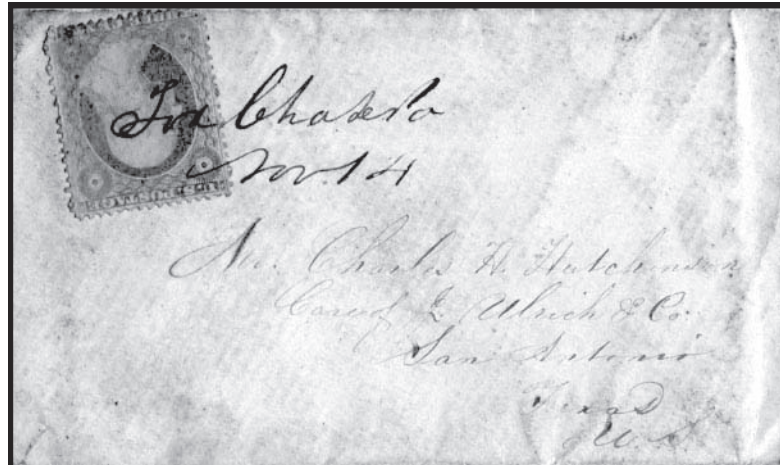 Nov. 14
Mr. Charles H. Hutchinson
Care of Ulrich & Co.
San Antonio
Texas